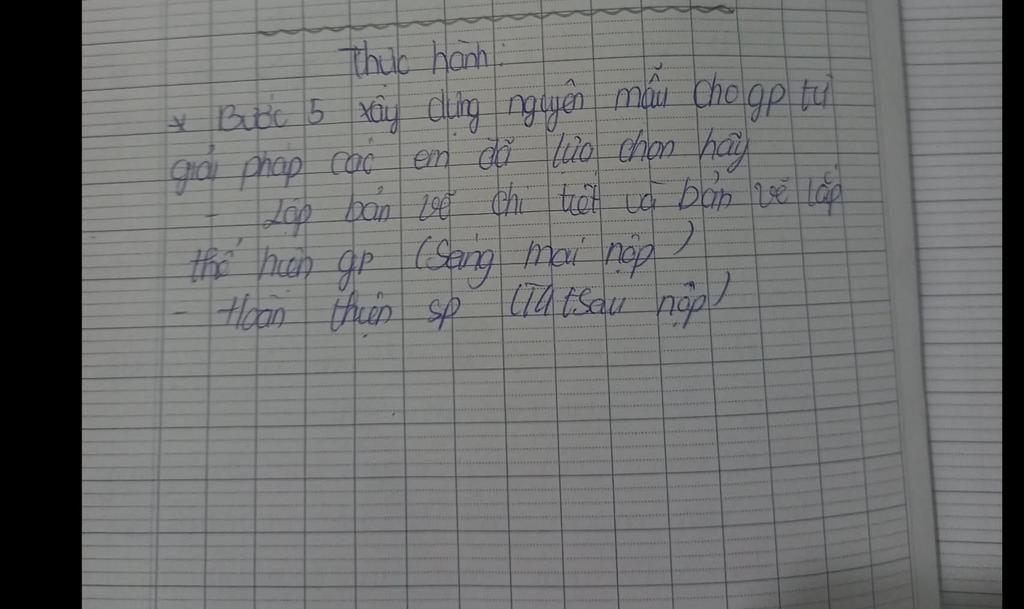 Thực hành:
* Bước 5 xây dựng nguyên mẫu cho gp từ
giải pháp các em đã lựa chọn hãy
- Lập bản vẽ chi tiết và bản vẽ lắp
thể hiện gp (Sáng mai nộp)
- Hoàn thiện sp (T4 tsau nộp)